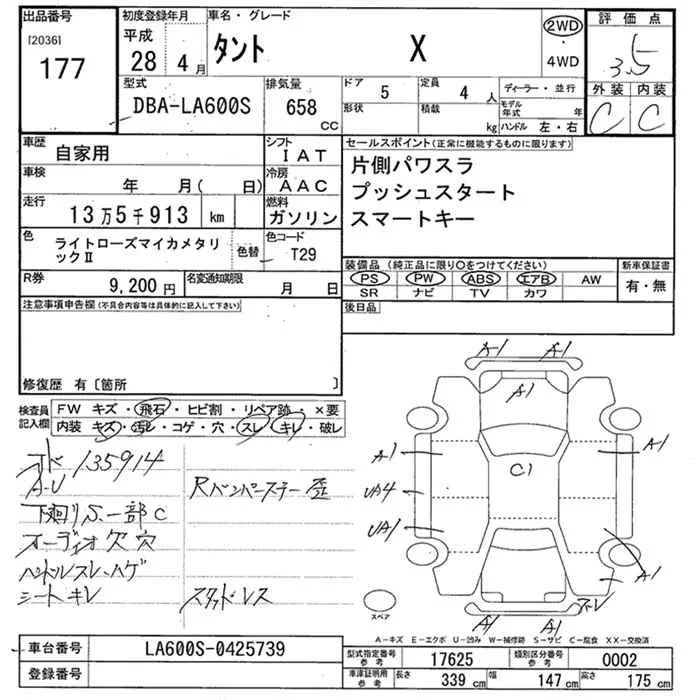 出品番号
[2036]
177
初度登録年月
平成
28年 4月
車名・グレード
タント X
2WD
・
4WD
評価点
3.5
外装 内装
C C
型式
DBA-LA600S
排気量
658
CC
ドア
5
定員
4人
形状
積載
kg
ディーラー・並行
モデル年式 年
ハンドル 左・右
車歴
自家用
シフト
IAT
車検
年 月( 日)
冷房
AAC
走行
13万5千913 km
燃料
ガソリン
色
ライトローズマイカメタリックⅡ
色替
色コード
T29
R券
9,200円
名変通知期限
月 日
セールスポイント(正常に機能するものに限ります)
片側パワスラ
プッシュスタート
スマートキー
装備品 (純正品に限り○をつけてください)
PS PW ABS エアB AW
SR ナビ TV カワ
新車保証書
有・無
後日品
注意事項申告欄(不具合内容等は具体的に記入して下さい)
修復歴 有〔箇所 〕
検査員
記入欄
FW キズ・飛石・ヒビ割・リペア跡・×要
内装 キズ・汚レ・コゲ・穴・スレ・キレ・破レ
135914
A-U
下廻りS、一部C
オーディオ欠 穴
ハンドルスレ、ハゲ
シートキレ
Rバンパーステー歪
スタッドレス
A1 A1
A1
A1
A1
C1
UA4
UA1
A1
A1 A1
スペア
A-キズ E-エクボ U-凹み W-補修跡 S-サビ C-腐食 XX-交換済
車台番号
LA600S-0425739
登録番号
型式指定番号
参考
17625
類別区分番号
参考
0002
車庫証明用
参考
長さ
339 cm
幅
147 cm
高さ
175 cm